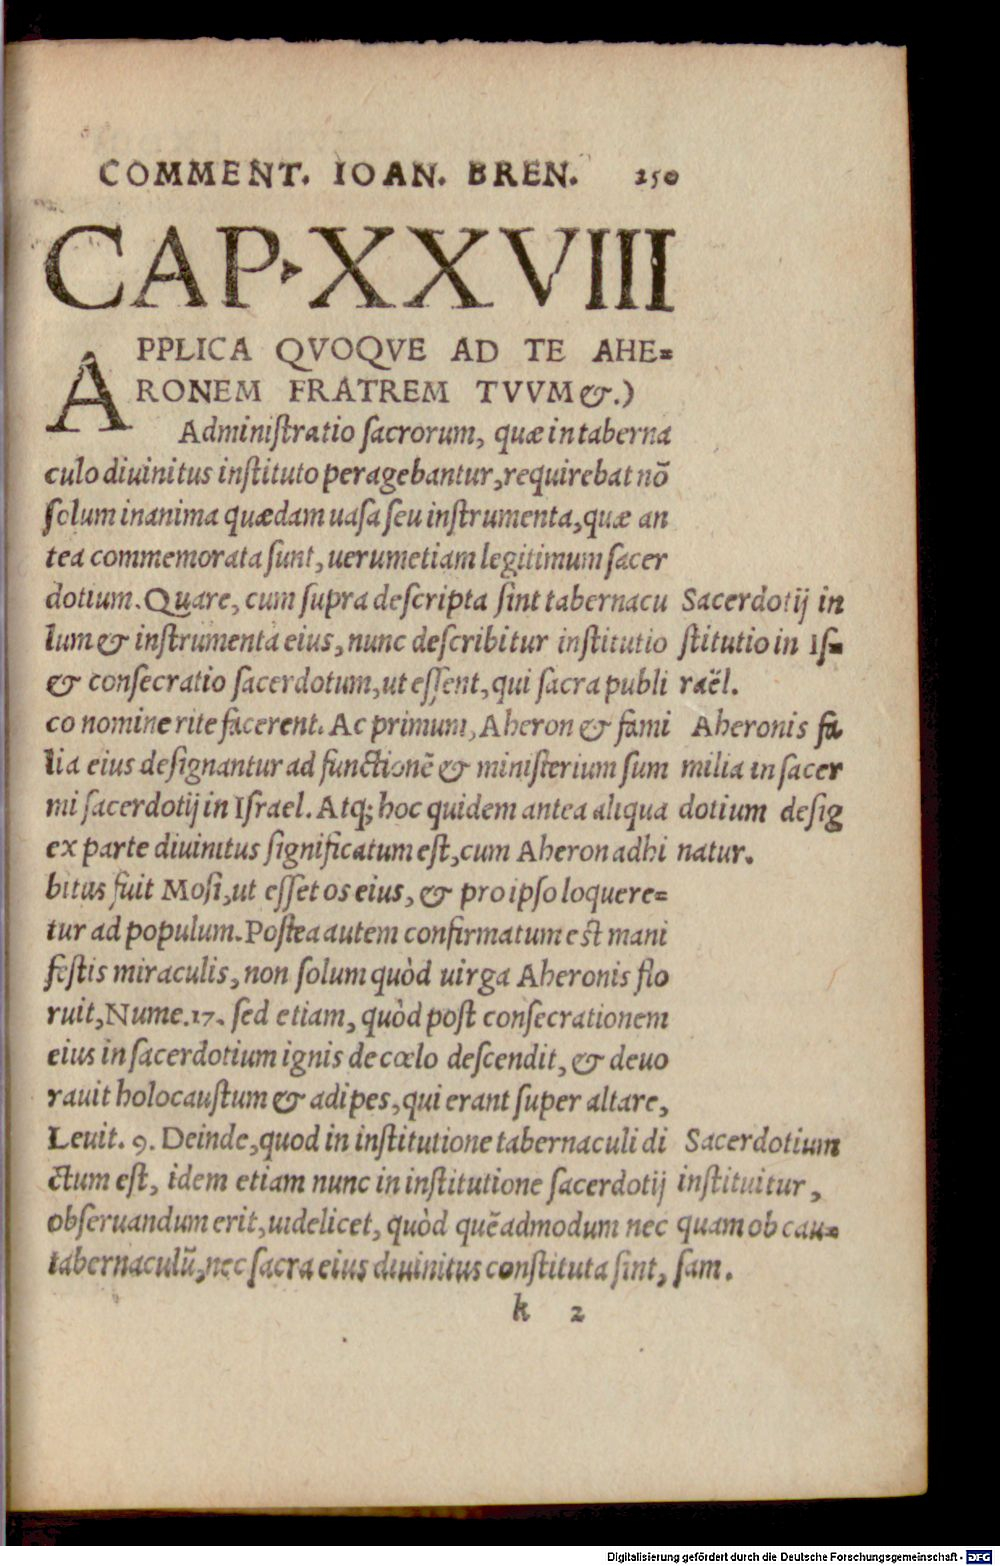 COMMENT. IOAN. BREN. 250
CAP. XXVIII
APPLICA QVOQVE AD TE AHE=
RONEM FRATREM TVVM &.)
Adminiſtratio ſacrorum, quæ in taberna
culo diuinitus inſtituto peragebantur, requirebat nõ
ſolum inanima quædam uaſa ſeu inſtrumenta, quæ an
tea commemorata ſunt, uerumetiam legitimum ſacer
dotium. Quare, cum ſupra deſcripta ſint tabernacu
lum & inſtrumenta eius, nunc deſcribitur inſtitutio
& conſecratio ſacerdotum, ut eſſent, qui ſacra publi
co nomine rite facerent. Ac primum, Aheron & fami
lia eius deſignantur ad functionẽ & miniſterium ſum
mi ſacerdotij in Iſrael. Atq; hoc quidem antea aliqua
ex parte diuinitus ſignificatum eſt, cum Aheron adhi
bitus fuit Moſi, ut eſſet os eius, & pro ipſo loquere=
tur ad populum. Poſtea autem confirmatum eſt mani
feſtis miraculis, non ſolum quòd uirga Aheronis flo
ruit, Nume. 17. ſed etiam, quòd poſt conſecrationem
eius in ſacerdotium ignis de cœlo deſcendit, & deuo
rauit holocauſtum & adipes, qui erant ſuper altare,
Leuit. 9. Deinde, quod in inſtitutione tabernaculi di
ctum eſt, idem etiam nunc in inſtitutione ſacerdotij
obſeruandum erit, uidelicet, quòd quẽadmodum nec
tabernaculũ, nec ſacra eius diuinitus conſtituta ſint,
Sacerdotij in
ſtitutio in Iſ=
raël.
Aheronis fa
milia in ſacer
dotium deſig
natur.
Sacerdotium
inſtituitur,
quam ob cau=
ſam.
k 2
Digitalisierung gefördert durch die Deutsche Forschungsgemeinschaft - DFG